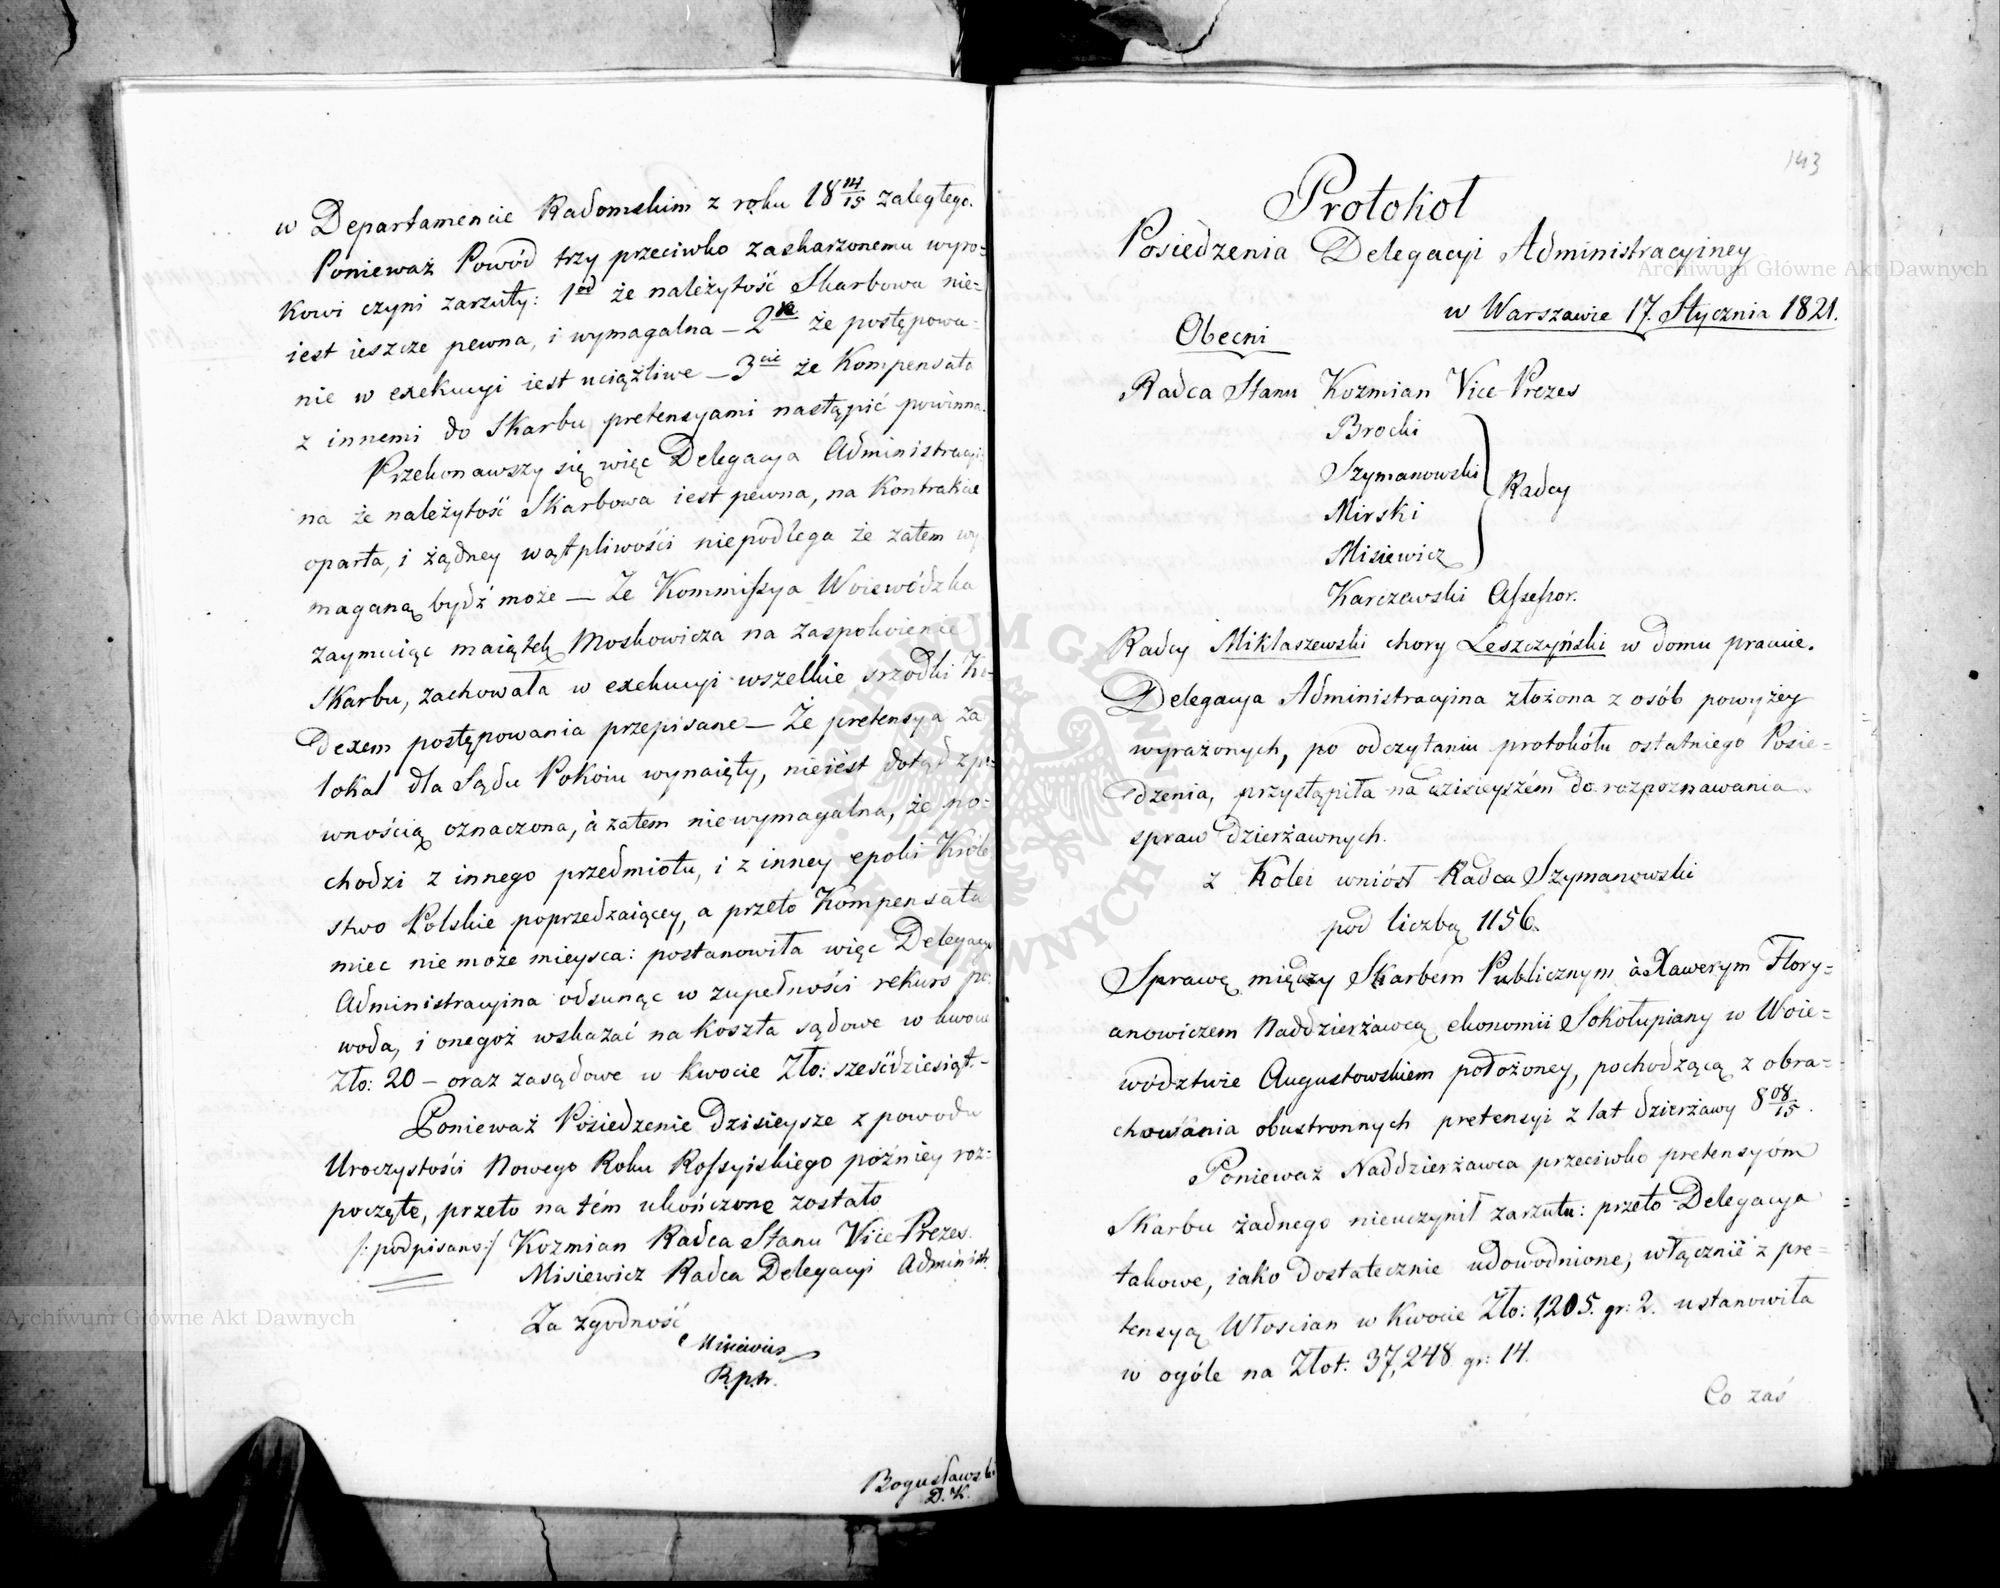 w Departamencie Radomskim z roku 18 14/15 zaległego.
Ponieważ Powód trzy przeciwko zaskarżonemu wyro=
kowi czyni zarzuty: 1od że należytość Skarbowa nie=
iest ieszcze pewna, i wymagalna – 2re że postępowa=
nie w exekucyi iest uciążliwe – 3cie że Kompensata
z innemi do Skarbu pretensyami nastąpić powinna.
Przekonawszy się więc Delegacya Administracyi=
na że należytość Skarbowa iest pewna, na Kontrakcie
oparta, i żądney wątpliwości niepodlega że zatem wy
maganą bydź może – Że Kommissya Woiewódzka
zaymuiąc maiątek Moskowicza na zaspokoienie
Skarbu, zachowała w exekucyi wszelkie srzodki Ko=
dexem postępowania przepisane – Że pretensya za
lokal dla Sądu Pokoiu wynaięty, nieiest dotąd z pe=
wnością oznaczona, à zatem niewymagalna, że po=
chodzi z innego przedmiotu, i z inney epoki Króle
stwo Polskie poprzedzaiącey, a przeto Kompensata
miec nie może mieysca: postanowiła więc Delegacya
Administracyina odsunąc w zupełności rekurs po
woda, i onegoż wskazać na koszta sądowe w kwocie
Zło: 20 – oraz zasądowe w kwocie Zło: sześćdziesiąt. –
Ponieważ Posiedzenie Dzisieysze z powodu
Uroczystości Nowego Roku Rossyiskiego późniey roz=
poczęte, przeto na tém ukończone zostało
/: podpisano :/ Kozmian Radca Stanu Vice-Prezes.
Misiewicz Radca Delegacyi Administr.
Za zgodność
Misiewicz
R.p.w.
Bogusławski
D. K.
143
Protokół
Posiedzenia Delegacyi Administracyiney
w Warszawie 17. Stycznia 1821.
Obecni
Radca Stanu Kozmian Vice-Prezes
Brocki
Szymanowski
Radcy
Mirski
Misiewicz
Karczewski Assessor.
Radcy Miklaszewski chory Leszczyński w domu pracuie.
Delegacya Administracyina złożona z osób powyżey
wyrażonych, po odczytaniu protokółu ostatniego Posie=
dzenia, przystąpiła na dzisieyszém do rozpoznawania
spraw dzierżawnych.
z Kolei wniósł Radca Szymanowski
pod liczbą 1156.
Sprawę między Skarbem Publicznym à Xawerym Flory=
anowiczem Naddzierżawcą ekonomii Sokołupiany w Woie=
wództwie Augustowskiem położoney, pochodzącą z obra=
chowania obustronnych pretensyi z lat dzierżawy 8 08/15.
Ponieważ Naddzierżawca przeciwko pretensyóm
Skarbu żadnego nieuczynił zarzutu: przeto Delegacya
takowe, iako dostatecznie udowodnione, włącznie z pre=
tensyą Włoscian w Kwocie Zło: 1,205. gr: 2. ustanowiła
w ogóle na Złot: 37,248 gr: 14.
Co zaś
Archiwum Główne Akt Dawnych
Archiwum Główne Akt Dawnych